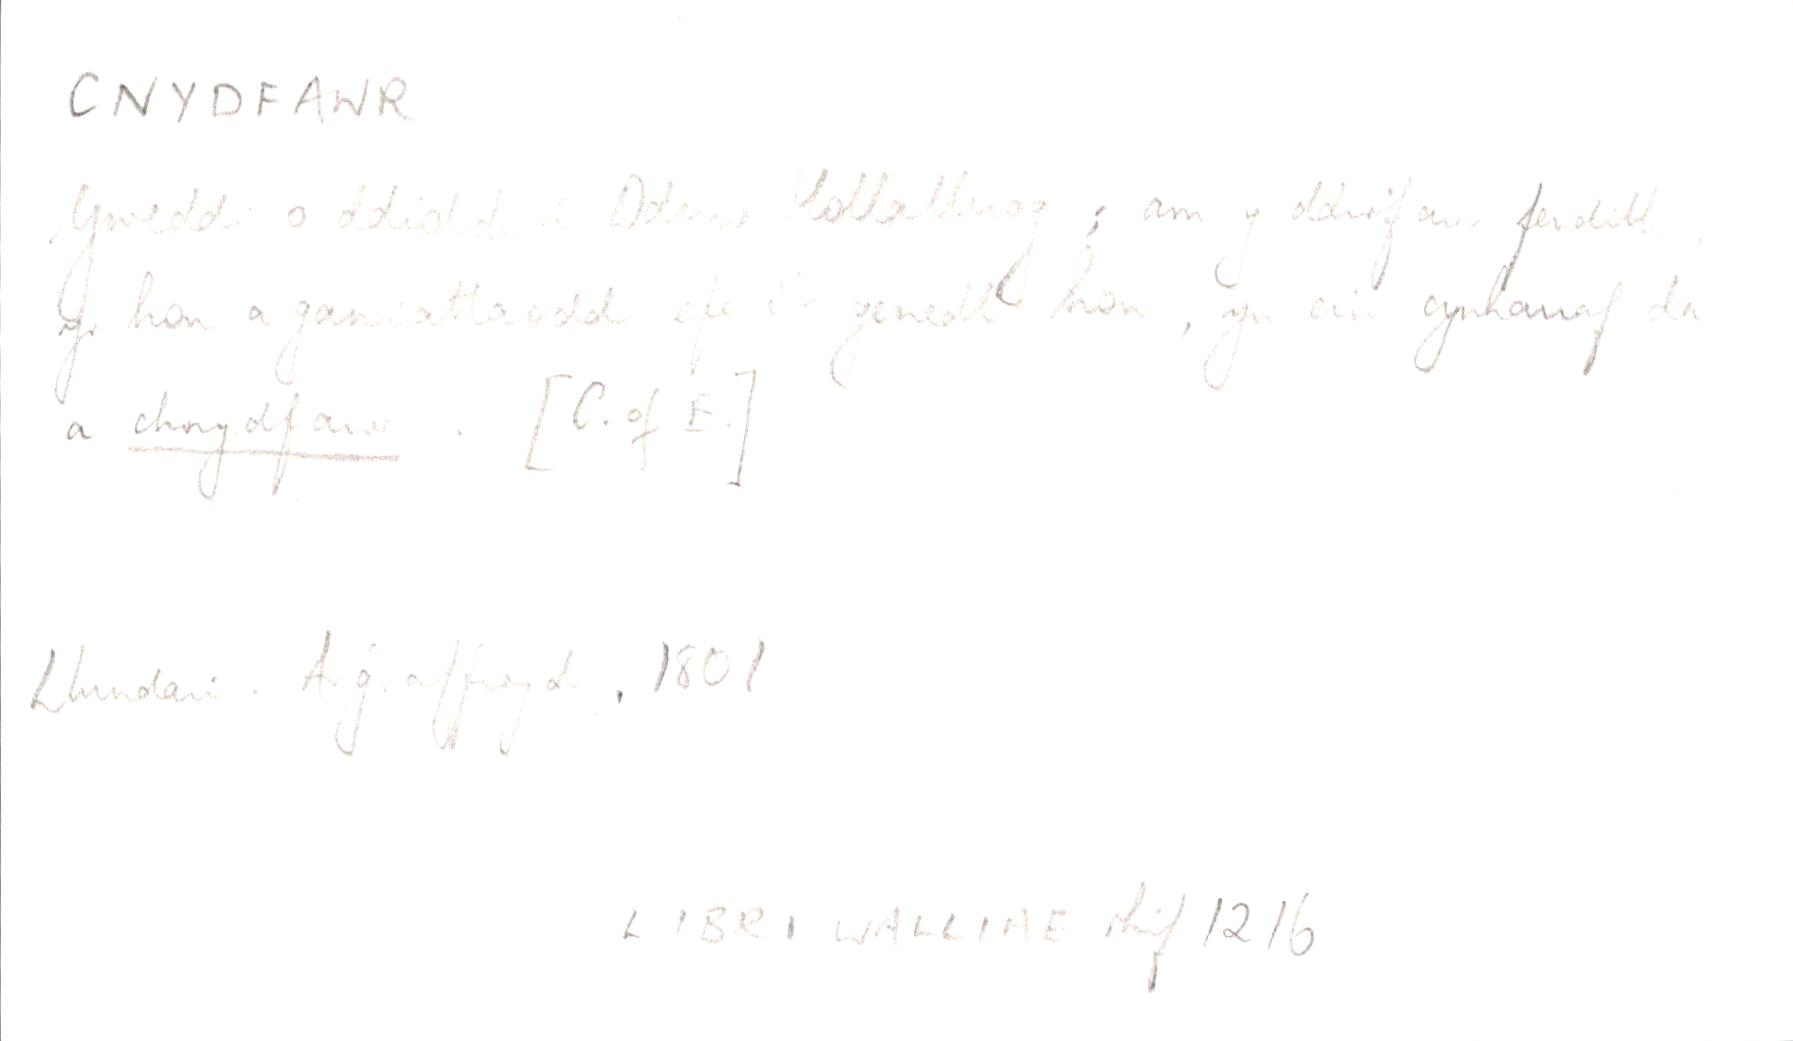 CNYDFAWR
Gweddi o ddiolch i Dduw Hollalluog, am y ddirfawr fendith,
yr hon a ganiattaodd efe i'r genedl hon, yn ein cynhauaf da
a chnydfawr. [C. of E.]
Llundain. Argraffwyd, 1801
LIBRI WALLIAE rhif 1216